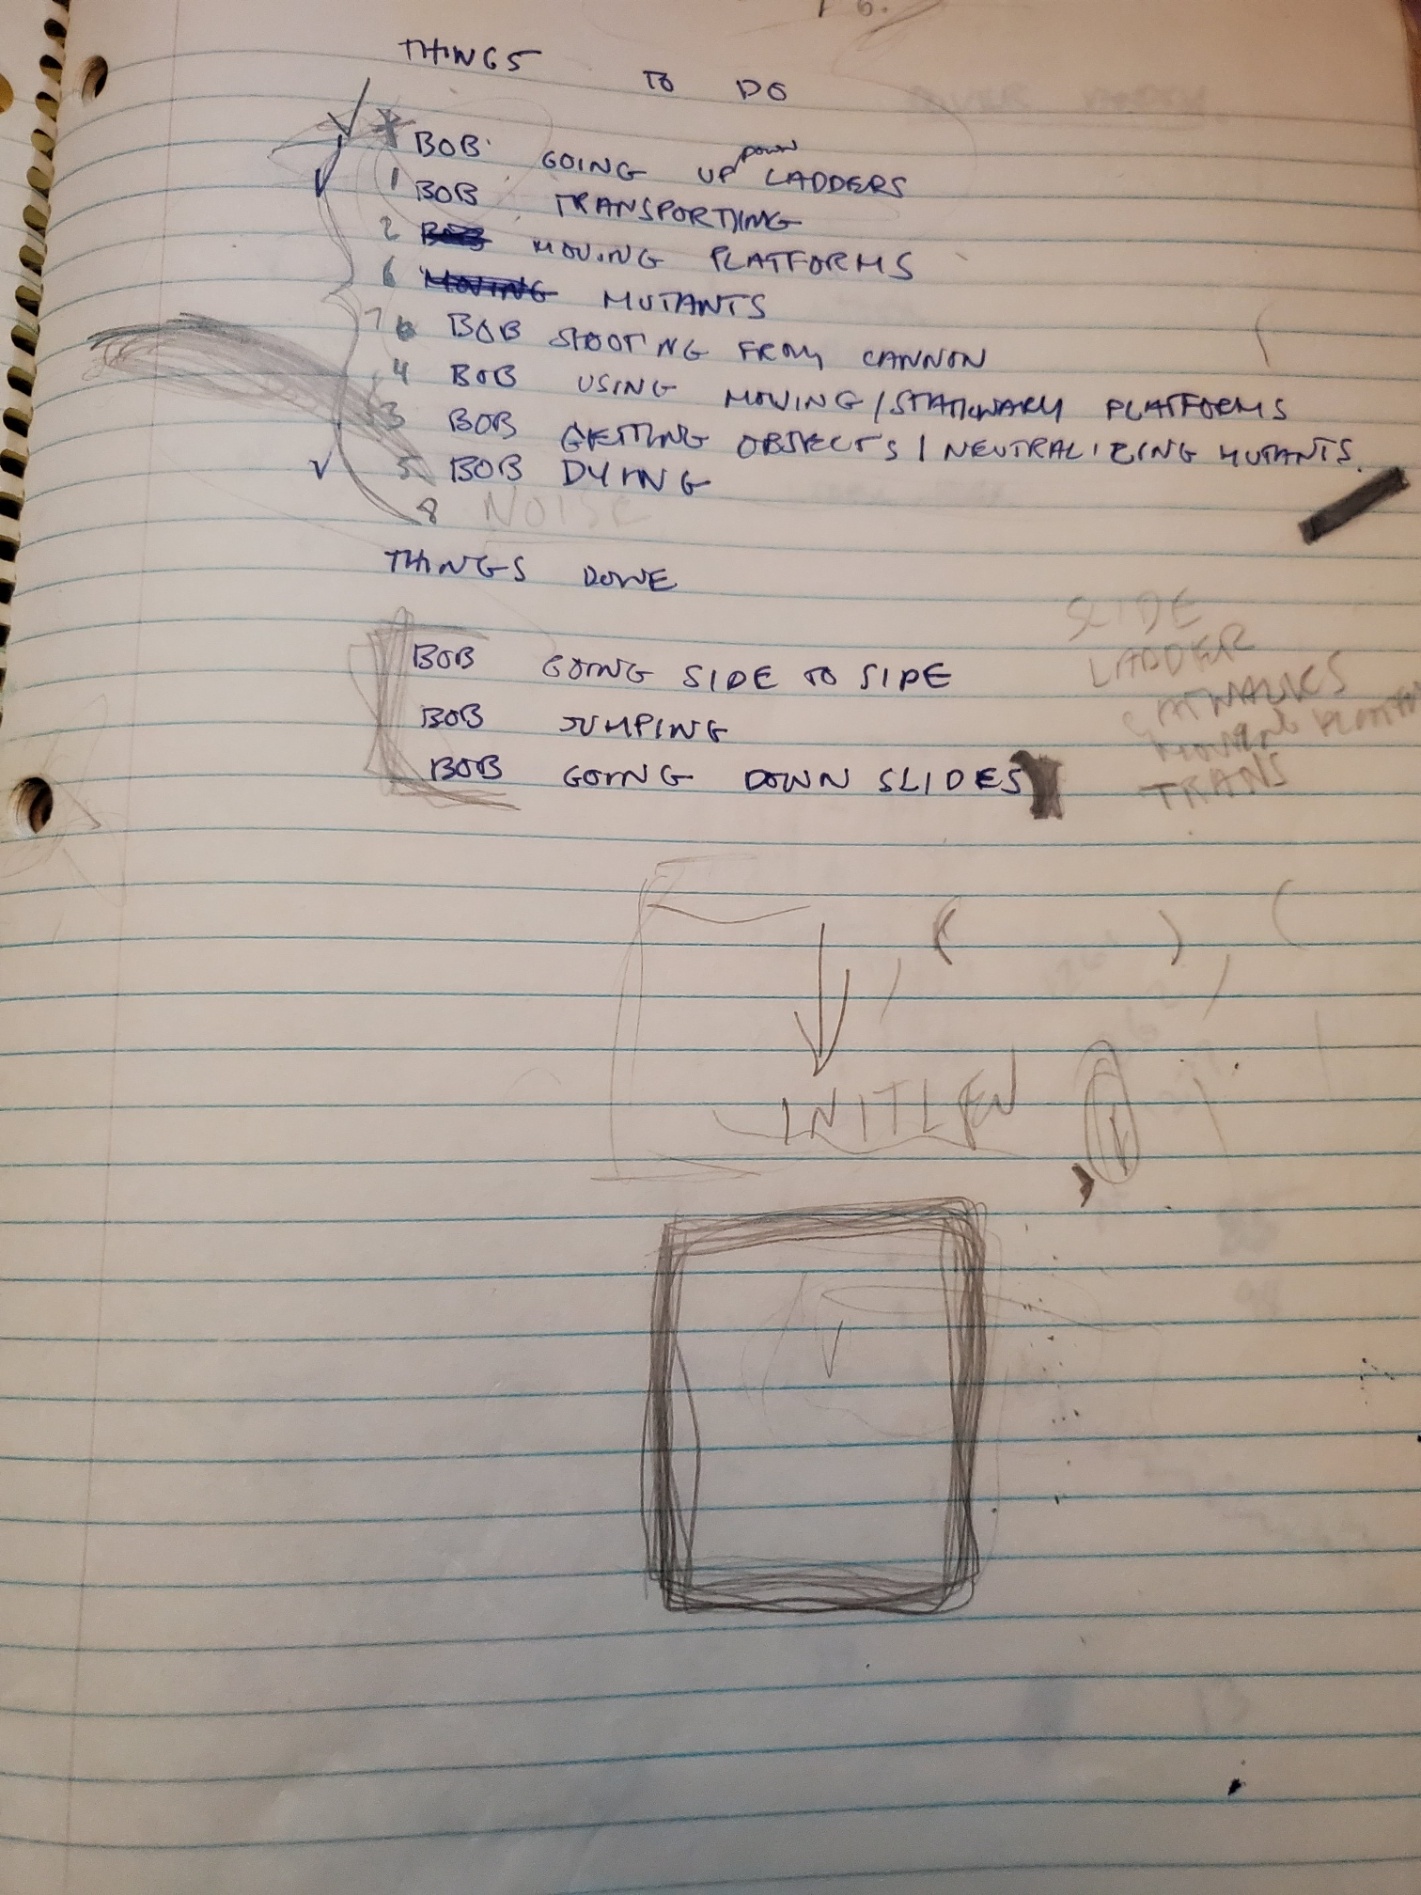 THINGS TO DO
* BOB GOING UP DOWN LADDERS
1 BOB TRANSPORTING
2 MOVING PLATFORMS
6 MUTANTS
7 BOB SHOOTING FROM CANNON
4 BOB USING MOVING/STATIONARY PLATFORMS
3 BOB GETTING OBJECTS / NEUTRALIZING MUTANTS.
5 BOB DYING
8 NOISE
THINGS DONE
BOB GOING SIDE TO SIDE
BOB JUMPING
BOB GOING DOWN SLIDES
SLIDE
LADDER
CATWALKS
TRANS